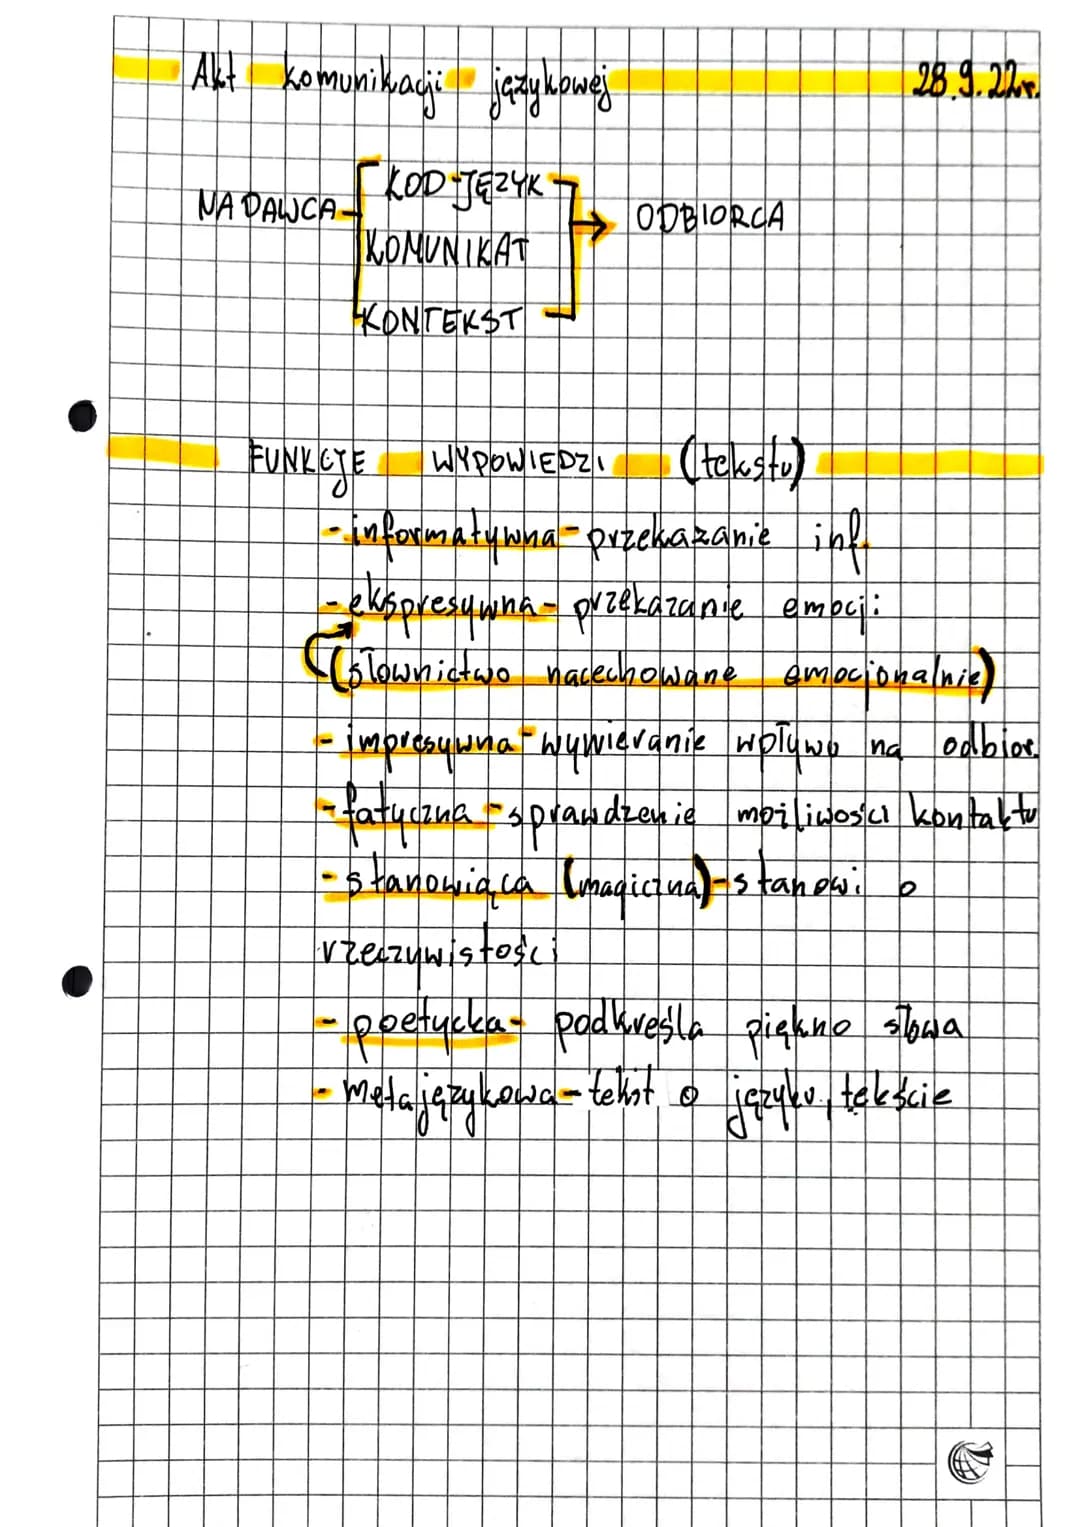 Akt komunikacji językowej 28.9.22r.
NADAWCA KOD-JĘZYK ODBIORCA
KOMUNIKAT
KONTEKST
FUNKCJE WYPOWIEDZI (tekstu)
- informatywna - przekazanie inf.
- ekspresywna - przekazanie emocji:
(słownictwo nacechowane emocjonalnie)
- impresywna - wywieranie wpływu na odbior.
- fatyczna - sprawdzenie możliwości kontaktu
- stanowiąca (magiczna) - stanowi o
rzeczywistości
- poetycka - podkreśla piękno słowa
- metajęzykowa - tekst o języku, tekście